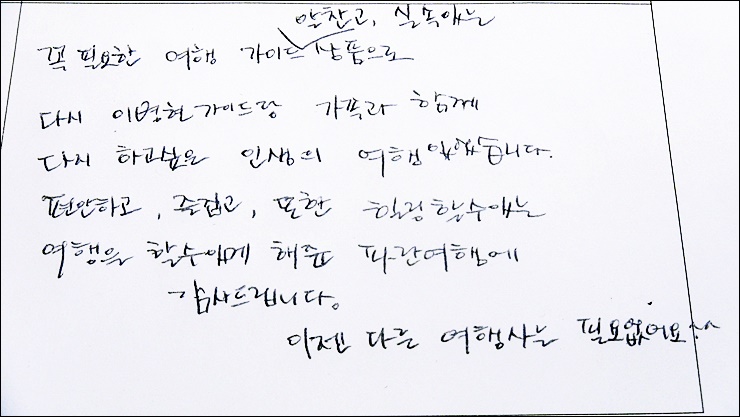 알찬고, 실속있는
꼭 필요한 여행 가이드 상품으로
다시 이병현가이드랑 가족과 함께
다시 하고싶은 인생의 여행이었습니다.
편안하고, 즐겁고, 또한 힐링할수있는
여행을 할수있게 해준 파란여행에
감사드립니다.
이젠 다른 여행사는 필요없어요^^